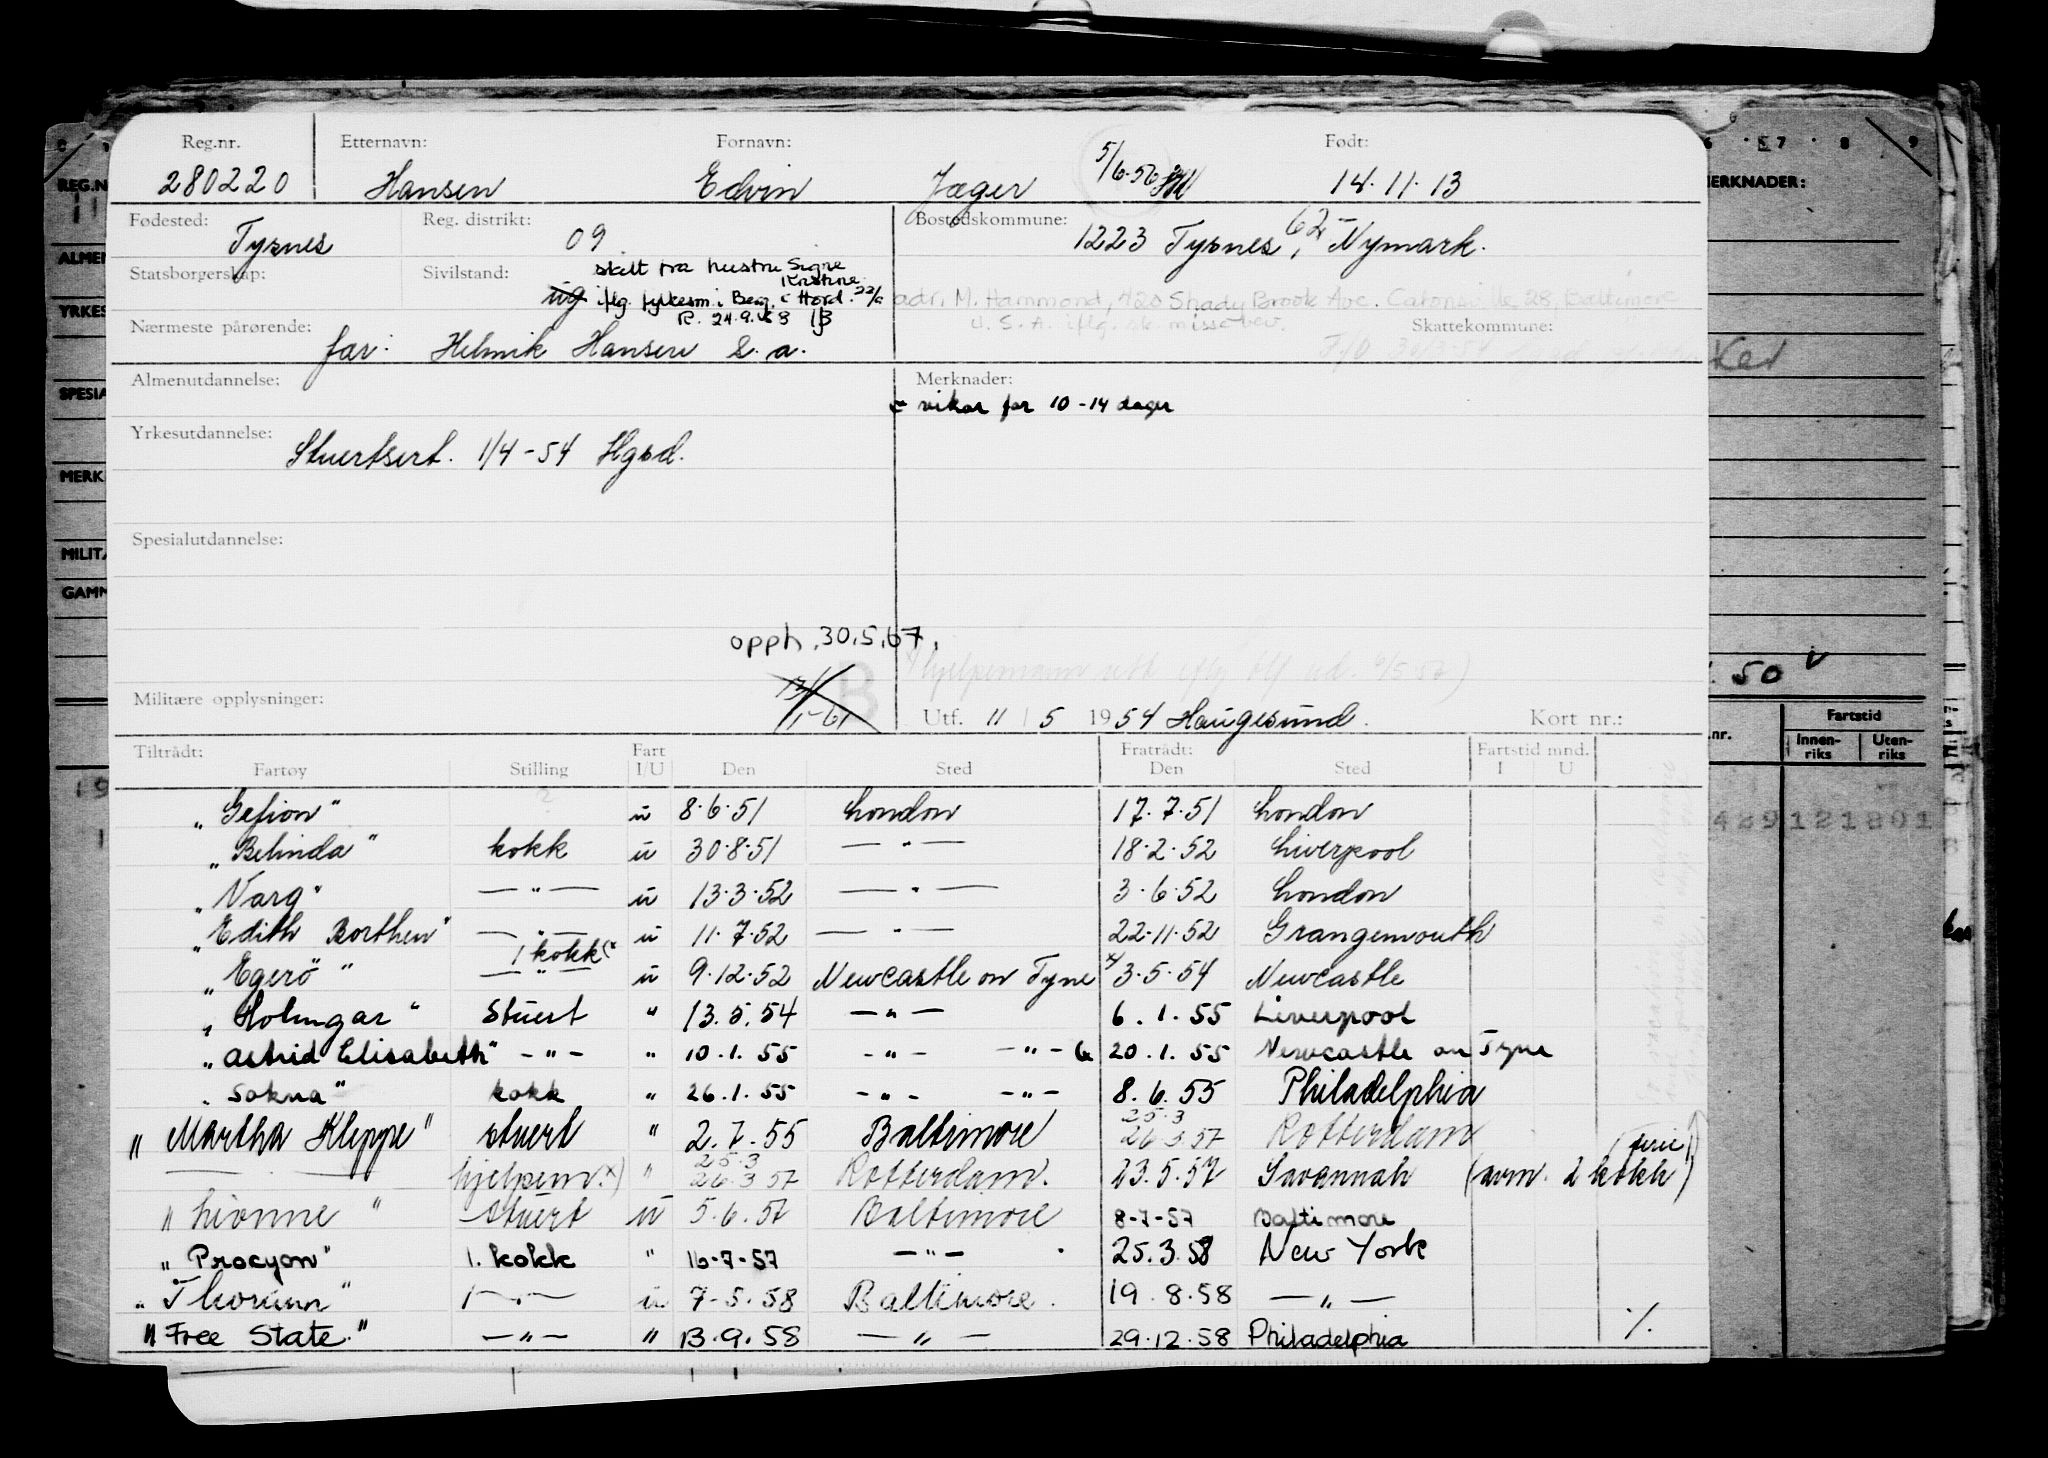 Reg.nr. Etternavn: Fornavn: Født:
280220 Hansen Edvin Jæger 5/6.56 14.11.13
Fødested: Reg. distrikt: Bostedskommune:
Tysnes 09 1223 Tysnes, 62 Nymark.
Statsborgerskap: Sivilstand: skilt fra hustru Signe
Kristine
ug iflg. fylkesm. i Berg. & Hord. 22/6 adr. M. Hammond, 420 Shady Brook Ave. Catonsville 28, Baltimore
R. 24.9.58 U.S.A. iflg.
Nærmeste pårørende: Skattekommune:
far: Helmik Hansen s.a.
Almenutdannelse: Merknader:
vikar for 10-14 dager
Yrkesutdannelse:
Stuertsert. 1/4-54 Hgsd.
Spesialutdannelse:
opph. 30.5.67.
Militære opplysninger: B Utf. 11/5 1954 Haugesund. Kort nr.:
Tiltrådt: Fart Fratrådt: Fartstid mnd.
Fartøy Stilling I/U Den Sted Den Sted I U
"Gefion" ? u 8.6.51 London 17.7.51 London
"Belinda" kokk u 30.8.51 — " — 18.2.52 Liverpool
"Varg" — " — u 13.3.52 — " — 3.6.52 London
"Edith Borthen" — " — u 11.7.52 — " — 22.11.52 Grangemouth
1 kokk
"Egerö" — " — u 9.12.52 Newcastle on Tyne 3.5.54 Newcastle
"Holmgar" Stuert " 13.5.54 — " — 6.1.55 Liverpool
"Astrid Elisabeth" - " - " 10.1.55 - " - - " - 20.1.55 Newcastle on Tyne
"Sokna" kokk " 26.1.55 - " - - " - 8.6.55 Philadelphia
"Martha Kleppe" stuert " 2.7.55 Baltimore 25.3 26.3.57 Rotterdam
— " — hjelpem. x) " 25.3 26.3.57 Rotterdam. 23.5.57 Savannah (avm. 2 kokk)
"Lionne" stuert u 5.6.57 Baltimore 8-7-57 Baltimore
"Procyon" 1. kokk " 16-7-57 - " - 25.3.58 New York
"Thorunn" — " — u 7-5.58 Baltimore. 19.8.58 — " —
"Free State." — " — " 13.9.58 — " — 29.12.58 Philadelphia ./.
REG.N
ALMEN
YRKES
SPESIA
MERK
MILIT
GAMM
MERKNADER:
50
Fartstid
nr. Innenriks Utenriks
429 121801